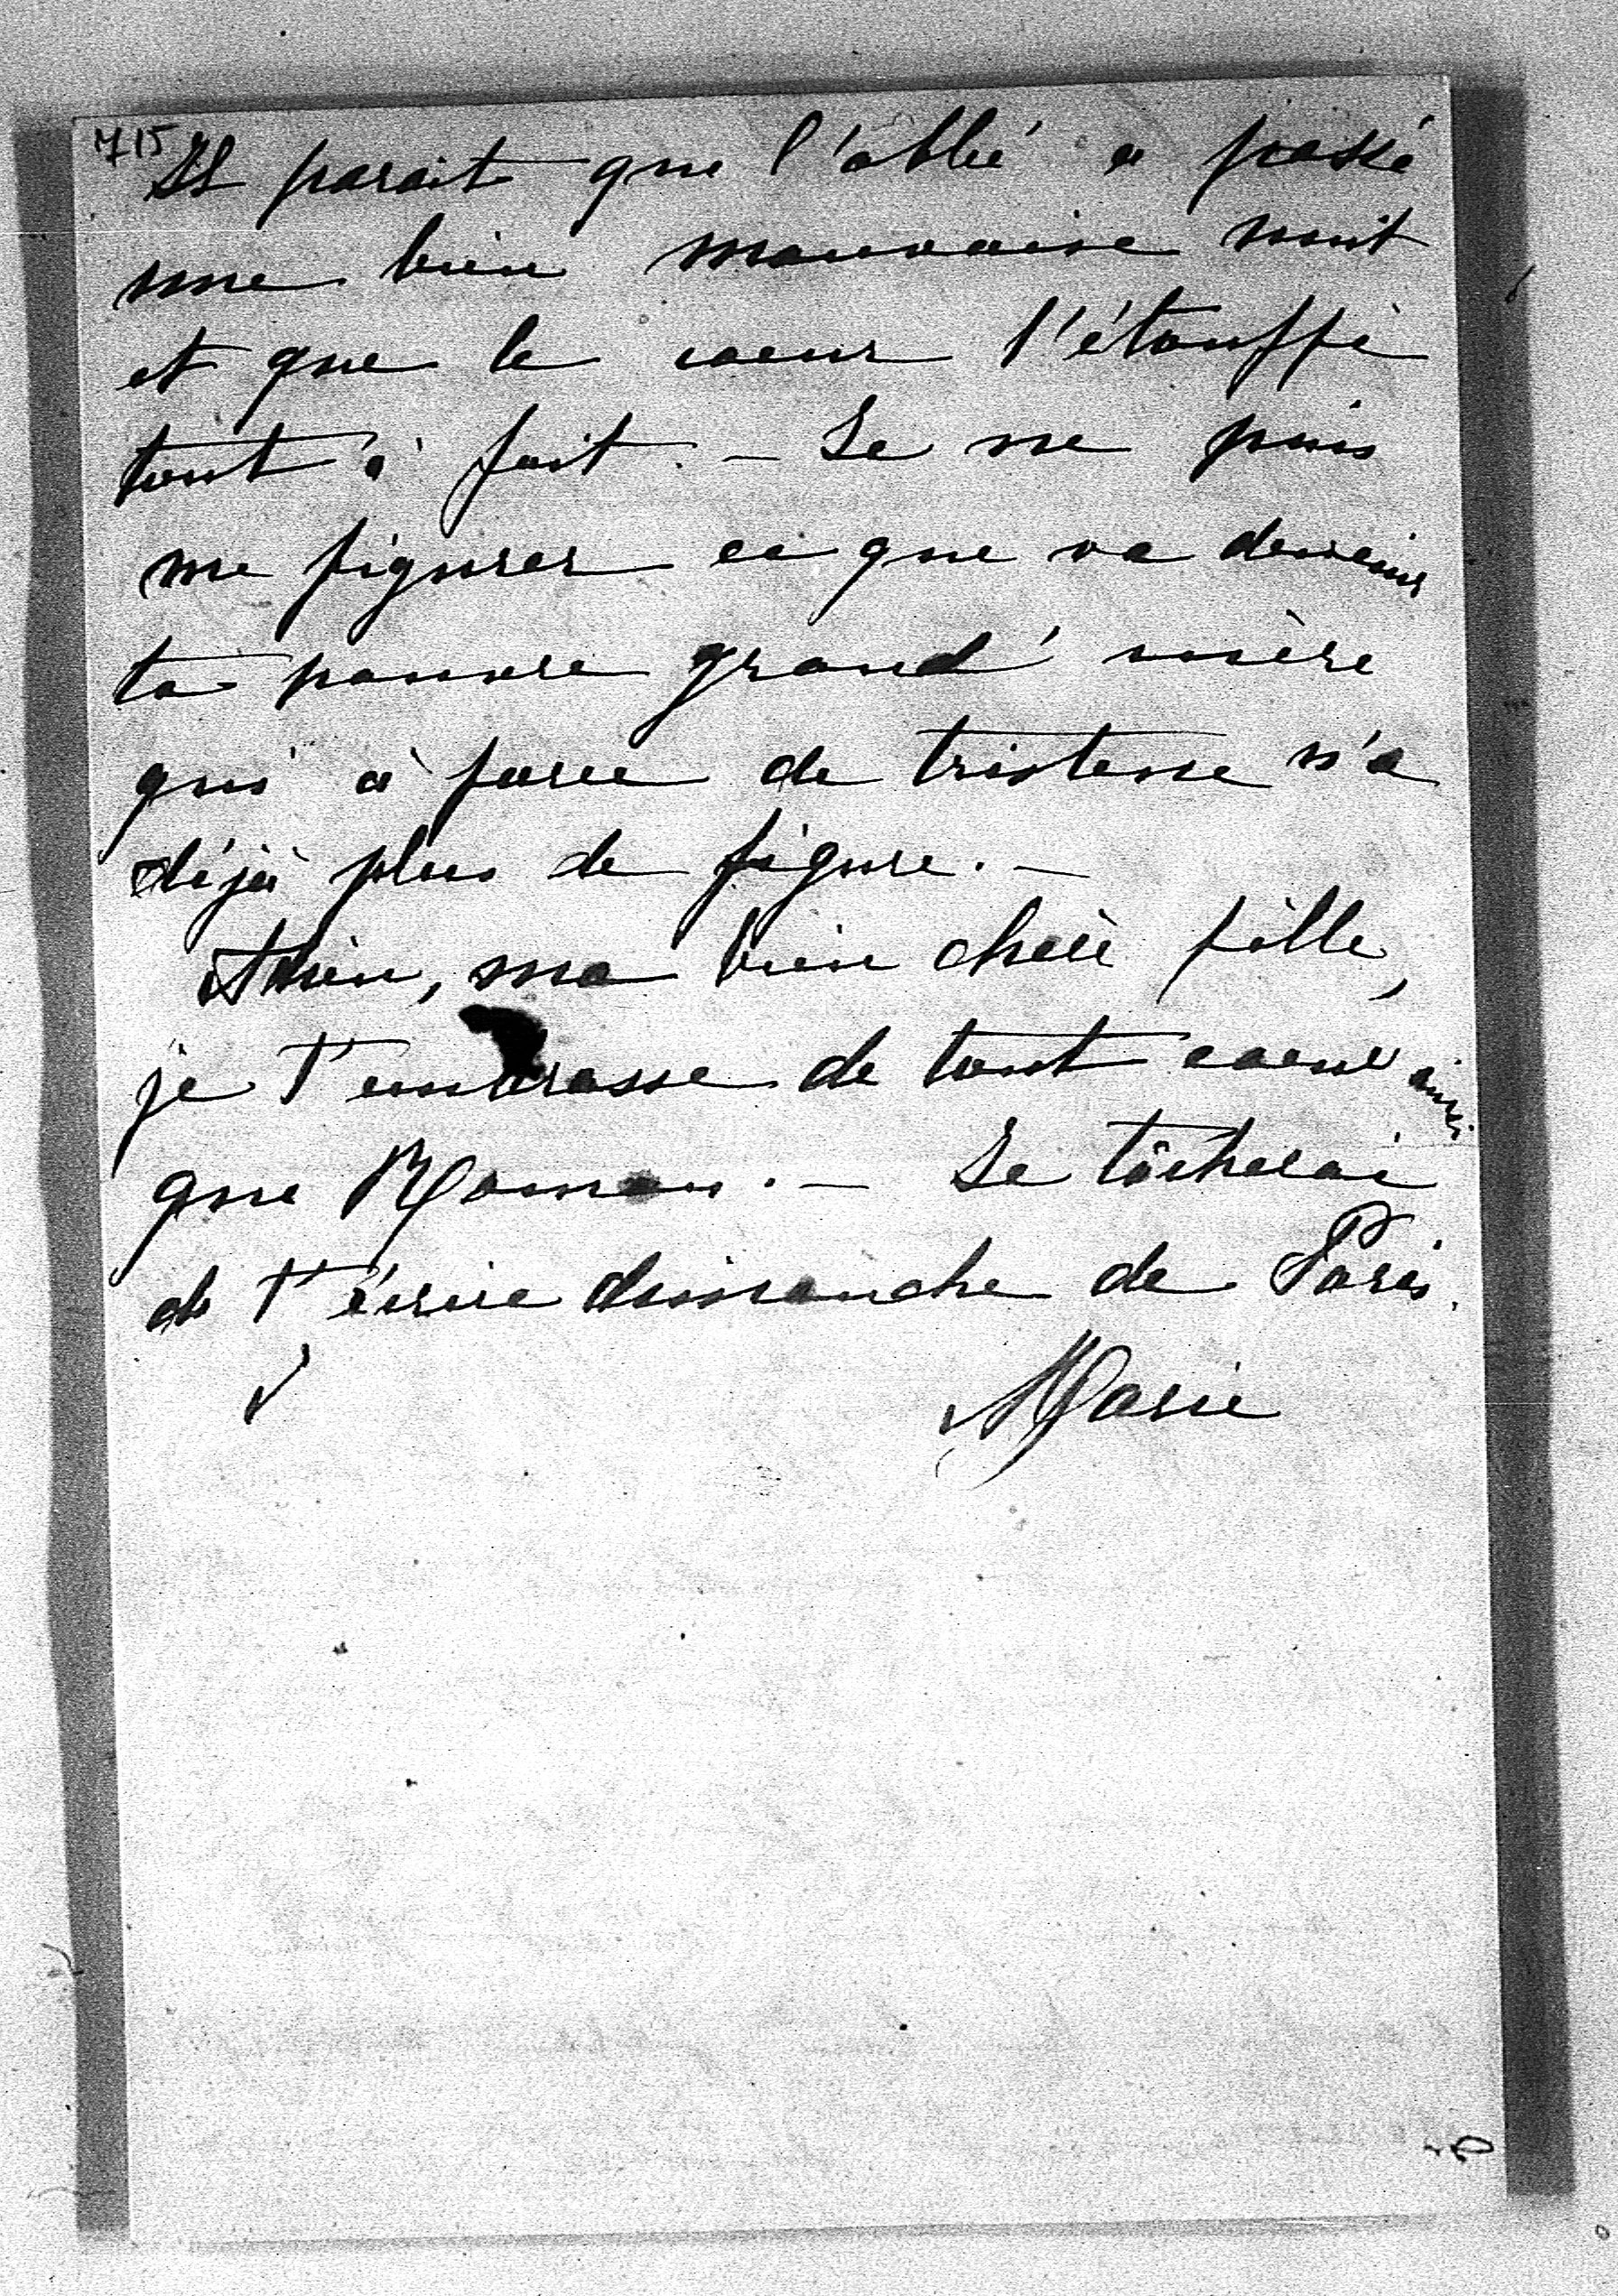 715
Il parait que l'abbé a passé
une bien mauvaise nuit
et que le coeur l'étouffe
tout à fait. — Je ne puis
me figurer ce que va devenir
ta pauvre grand' mère
qui à force de tristesse n'a
déjà plus de figure. —
Adieu, ma bien chère fille,
je t'embrasse de tout coeur ainsi
que Maman. — Je tâcherai
de t'écrire dimanche de Paris.
Marie